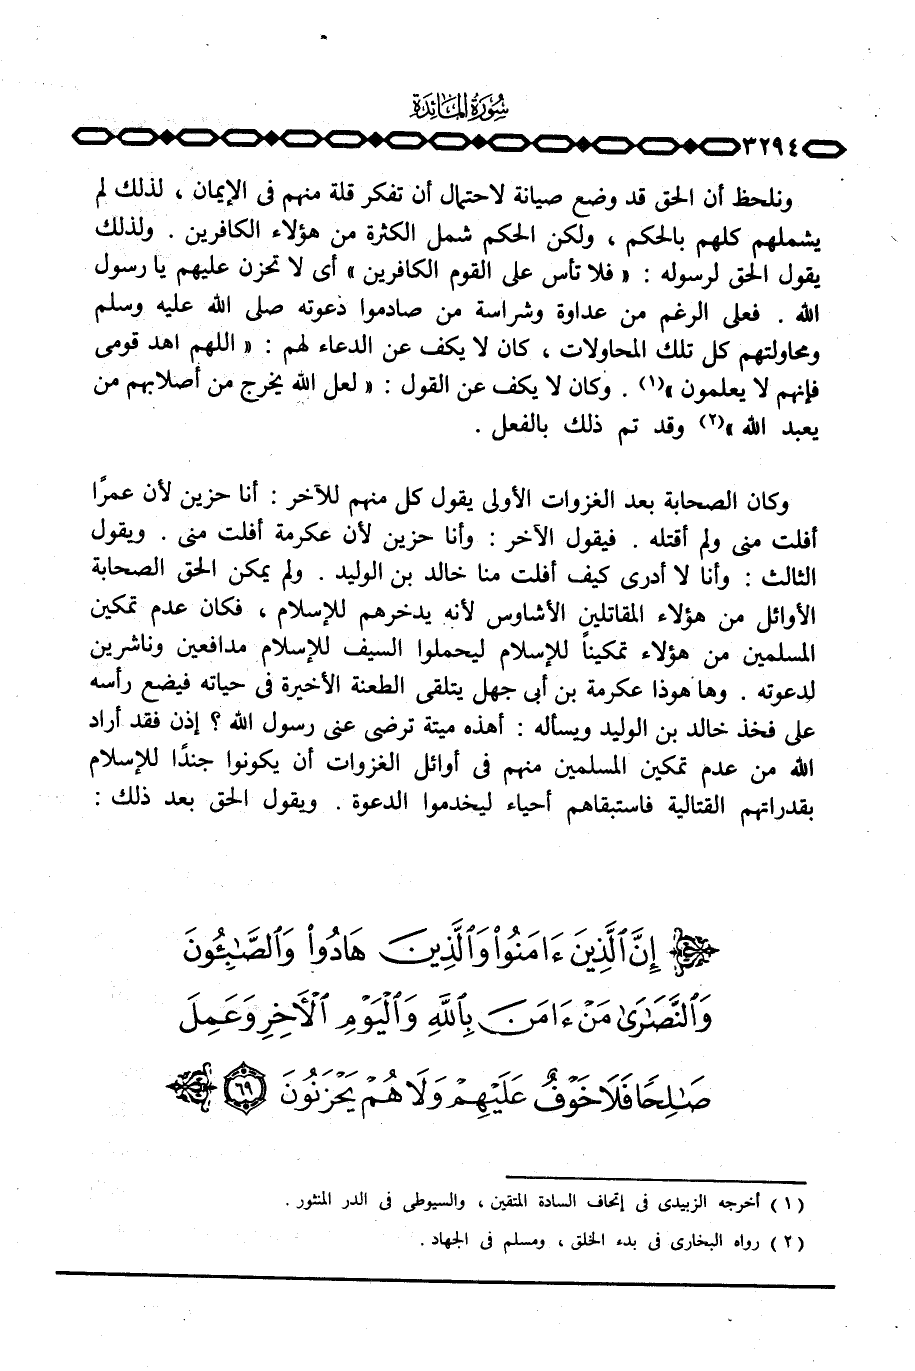 سُورَةُ المَائِدَة
٣٢٩٤
ونلحظ أن الحق قد وضع صيانة لاحتمال أن تفكر قلة منهم فى الإيمان ، لذلك لم
يشملهم كلهم بالحكم ، ولكن الحكم شمل الكثرة من هؤلاء الكافرين . ولذلك
يقول الحق لرسوله : « فلا تأس على القوم الكافرين » أى لا تحزن عليهم يا رسول
الله . فعلى الرغم من عداوة وشراسة من صادموا دعوته صلى الله عليه وسلم
ومحاولتهم كل تلك المحاولات ، كان لا يكف عن الدعاء لهم : « اللهم اهد قومى
فإنهم لا يعلمون »(١) . وكان لا يكف عن القول : « لعل الله يخرج من أصلابهم من
يعبد الله »(٢) وقد تم ذلك بالفعل .
وكان الصحابة بعد الغزوات الأولى يقول كل منهم للآخر : أنا حزين لأن عمرًا
أفلت منى ولم أقتله . فيقول الآخر : وأنا حزين لأن عكرمة أفلت منى . ويقول
الثالث : وأنا لا أدرى كيف أفلت منا خالد بن الوليد . ولم يمكن الحق الصحابة
الأوائل من هؤلاء المقاتلين الأشاوس لأنه يدخرهم للإسلام ، فكان عدم تمكين
المسلمين من هؤلاء تمكيناً للإسلام ليحملوا السيف للإسلام مدافعين وناشرين
لدعوته . وها هوذا عكرمة بن أبى جهل يتلقى الطعنة الأخيرة فى حياته فيضع رأسه
على فخذ خالد بن الوليد ويسأله : أهذه ميتة ترضى عنى رسول الله ؟ إذن فقد أراد
الله من عدم تمكين المسلمين منهم فى أوائل الغزوات أن يكونوا جندًا للإسلام
بقدراتهم القتالية فاستبقاهم أحياء ليخدموا الدعوة . ويقول الحق بعد ذلك :
إِنَّ ٱلَّذِينَ ءَامَنُوا۟ وَٱلَّذِينَ هَادُوا۟ وَٱلصَّٰبِـُٔونَ
وَٱلنَّصَٰرَىٰ مَنْ ءَامَنَ بِٱللَّهِ وَٱلْيَوْمِ ٱلْـَٔاخِرِ وَعَمِلَ
صَٰلِحًا فَلَا خَوْفٌ عَلَيْهِمْ وَلَا هُمْ يَحْزَنُونَ ٦٩
(١) أخرجه الزبيدى فى إتحاف السادة المتقين ، والسيوطى فى الدر المنثور .
(٢) رواه البخارى فى بدء الخلق ، ومسلم فى الجهاد .